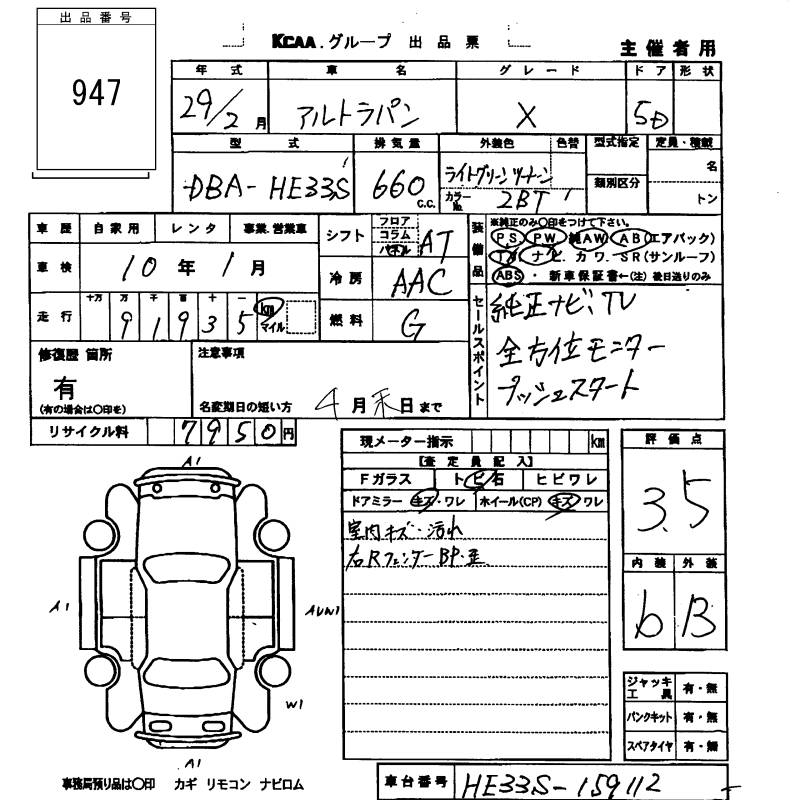 出品番号
947
KCAA.グループ 出品票
主催者用
年式 車名 グレード ドア 形状
29/2月 アルトラパン X 5D
型式 排気量 外装色 色替 型式指定 定員・積載
DBA-HE33S 660 C.C. ライトグリーンツートン 類別区分 名
カラーNo. 2BT トン
車歴 自家用 レンタ 事業.営業車
シフト フロア コラム パネル AT
車検 10年1月
冷房 AAC
走行 十万 万 千 百 十 一
9 1 9 3 5 km マイル
燃料 G
装備品 ※純正のみ〇印をつけて下さい。
PS PW 純AW AB(エアバック)
TV ナビ. カワ. SR(サンルーフ)
ABS ・ 新車保証書←(注)後日送りのみ
セールスポイント
純正ナビ、TV
全方位モニター
プッシュスタート
修復歴 箇所
有
(有の場合は〇印を)
注意事項
名変期日の短い方 4月末日まで
リサイクル料 7950円
現メーター指示 km
【査定員記入】
Fガラス ト ビ 石 ヒビワレ
ドアミラー キズ・ワレ ホイール(CP) キズ ワレ
室内キズ・汚れ
右RフェンダーBP・歪
評価点
3.5
内装 外装
b B
A1
A1
AUW1
W1
A1
ジャッキ工具 有・無
パンクキット 有・無
スペアタイヤ 有・無
事務局預り品は〇印 カギ リモコン ナビロム
車台番号 HE33S-159112